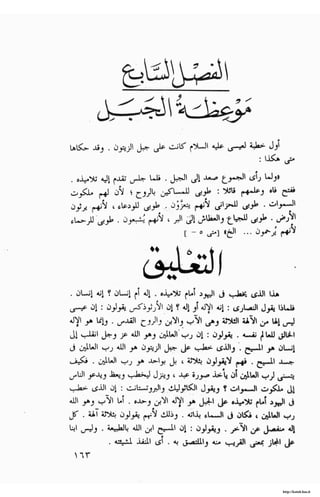 الفصل السابع
موعظة الجبل
أول خطبة لعيسى عليه السلام كانت على جبل الزيتون . وقد حكاها
متى هكذا :
«ولما رأى الجموع صعد إلى الجبل . فلما جلس تقدم إليه تلاميذه .
ففتح فاه وعلمهم قائلا : طوبى للمساكين بالروح ؛ لأن لهم ملكوت
السموات . طوبى للحزانى لأنهم يتعزون . طوبى للودعاء ، لأنهم يرثون
الأرض . طوبى للجياع والعطاش إلى البر ، لأنهم يشبعون . طوبى للرحماء
لأنهم يرحمون ... الخ» [متى ٥ - ]
التعليق
هذا الذى يخطب فى اليهود أمام تلاميذه . إله أم إنسان ؟ إنه إنسان .
فلماذا يقول النصارى : إنه الإله أو إله ؟ إن الأرثوذكس يقولون : إن عيسى
ليس إلها من الآلهة الثلاثة وهى الآب والابن والروح القدس . وإنما هو الإله
الخالق للعالم نفسه . يقولون : إن رب العالمين وهو الله عز وجل انقلب إلى
إنسان هو المسيح . والذى خطب على جبل الزيتون هو الله رب العالمين فى
جسد المسيح . فهم لا يقولون بثلاثة ، بل بواحد هو رب العالمين . فكيف
يتسنى لرب العالمين أن يأخذ صورة عبد ، وينزل ليخطب ويعظ ويدعو الناس
إلى ملكوت السموات ؟ ويقول الكاثوليك والبروتستانت : إن الذى خطب
فى اليهود أمام تلاميذه على الجبل هو الإله الابن وحده . أما الآب وهو الله
رب العالمين ، فكان فى السماء بذاته . وذلك لأنهم يقولون بثلاثة آلهة . كل
إله منفصل عن الآخر . ويقولون : إن المسيح ابن الله بالطبيعة . وليس ابنا
على المجاز بمعنى القريب منه والملتصق به . أى المنفذ لمشيئته .
١٦٣
http://kotob.has.it